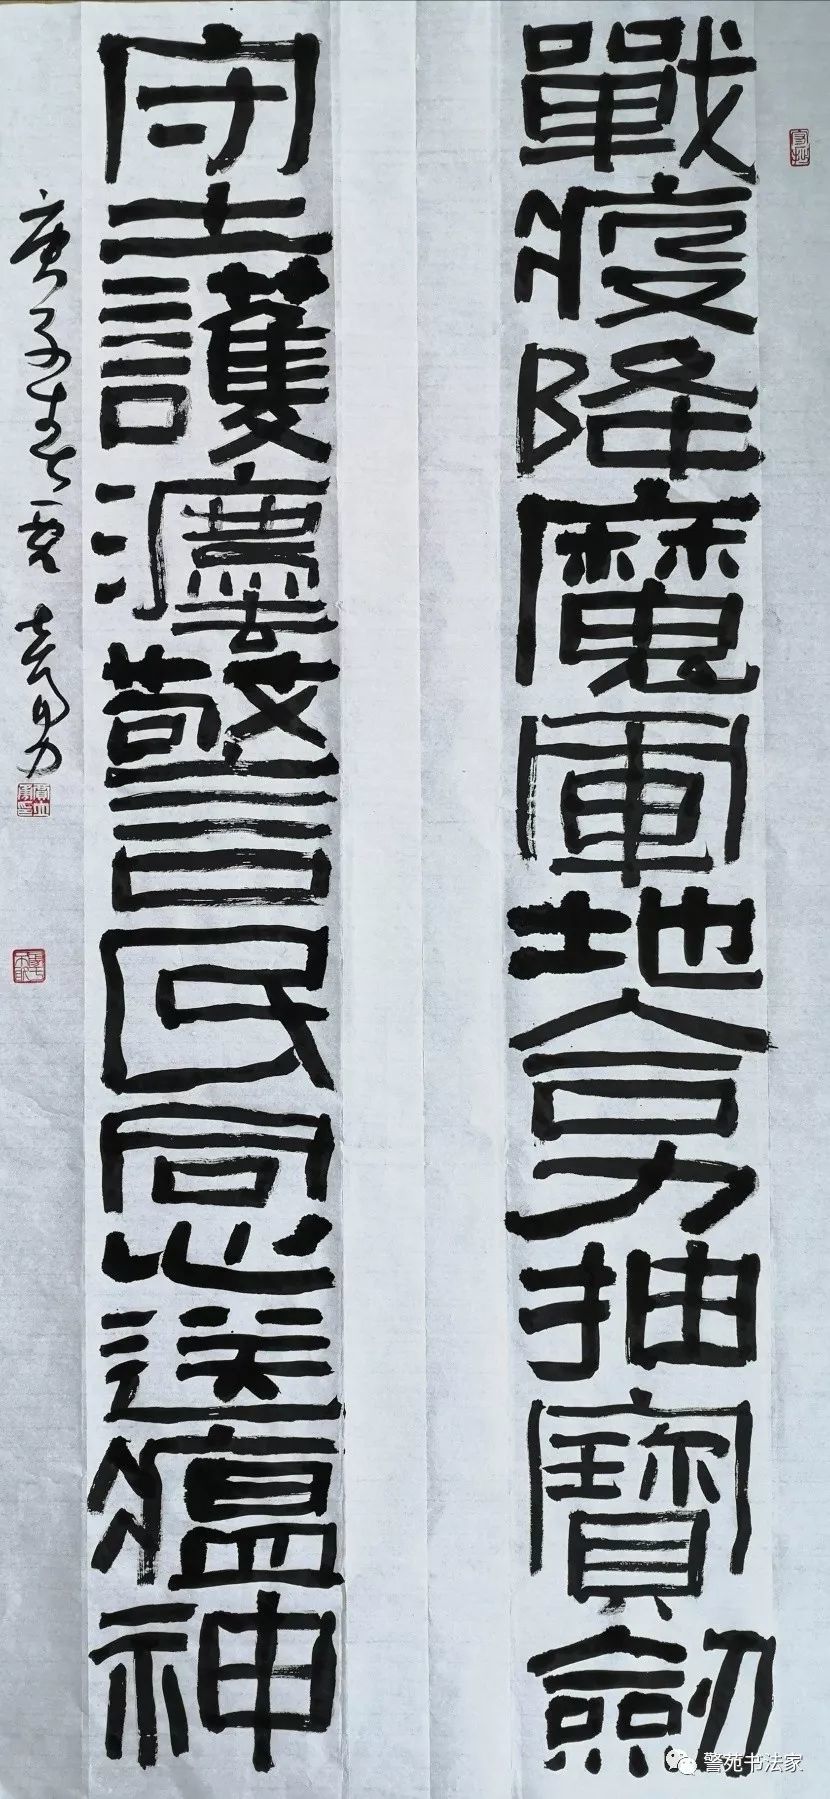 戰疫降魔軍地合力抽寶劒
守土護灋警民同心送瘟神
庚子春
警苑书法家